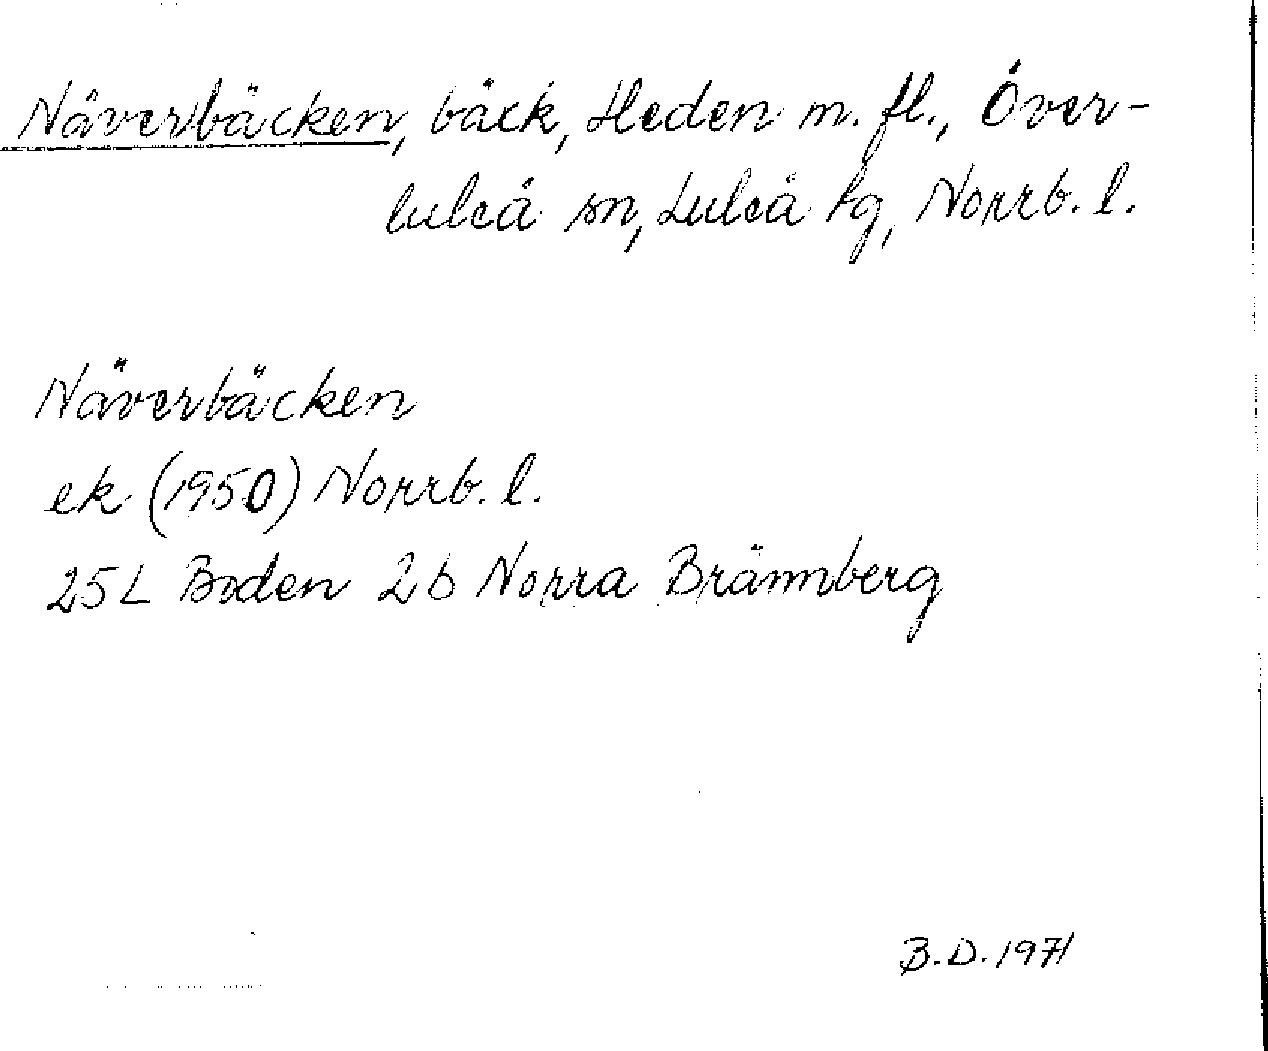 Näverbäcken, bäck, Heden m. fl., Över-
luleå sn, Luleå tg, Norrb. l.
Näverbäcken
ek (1950) Norrb. l.
25L Boden 2b Norra Brännberg
B.D. 1971